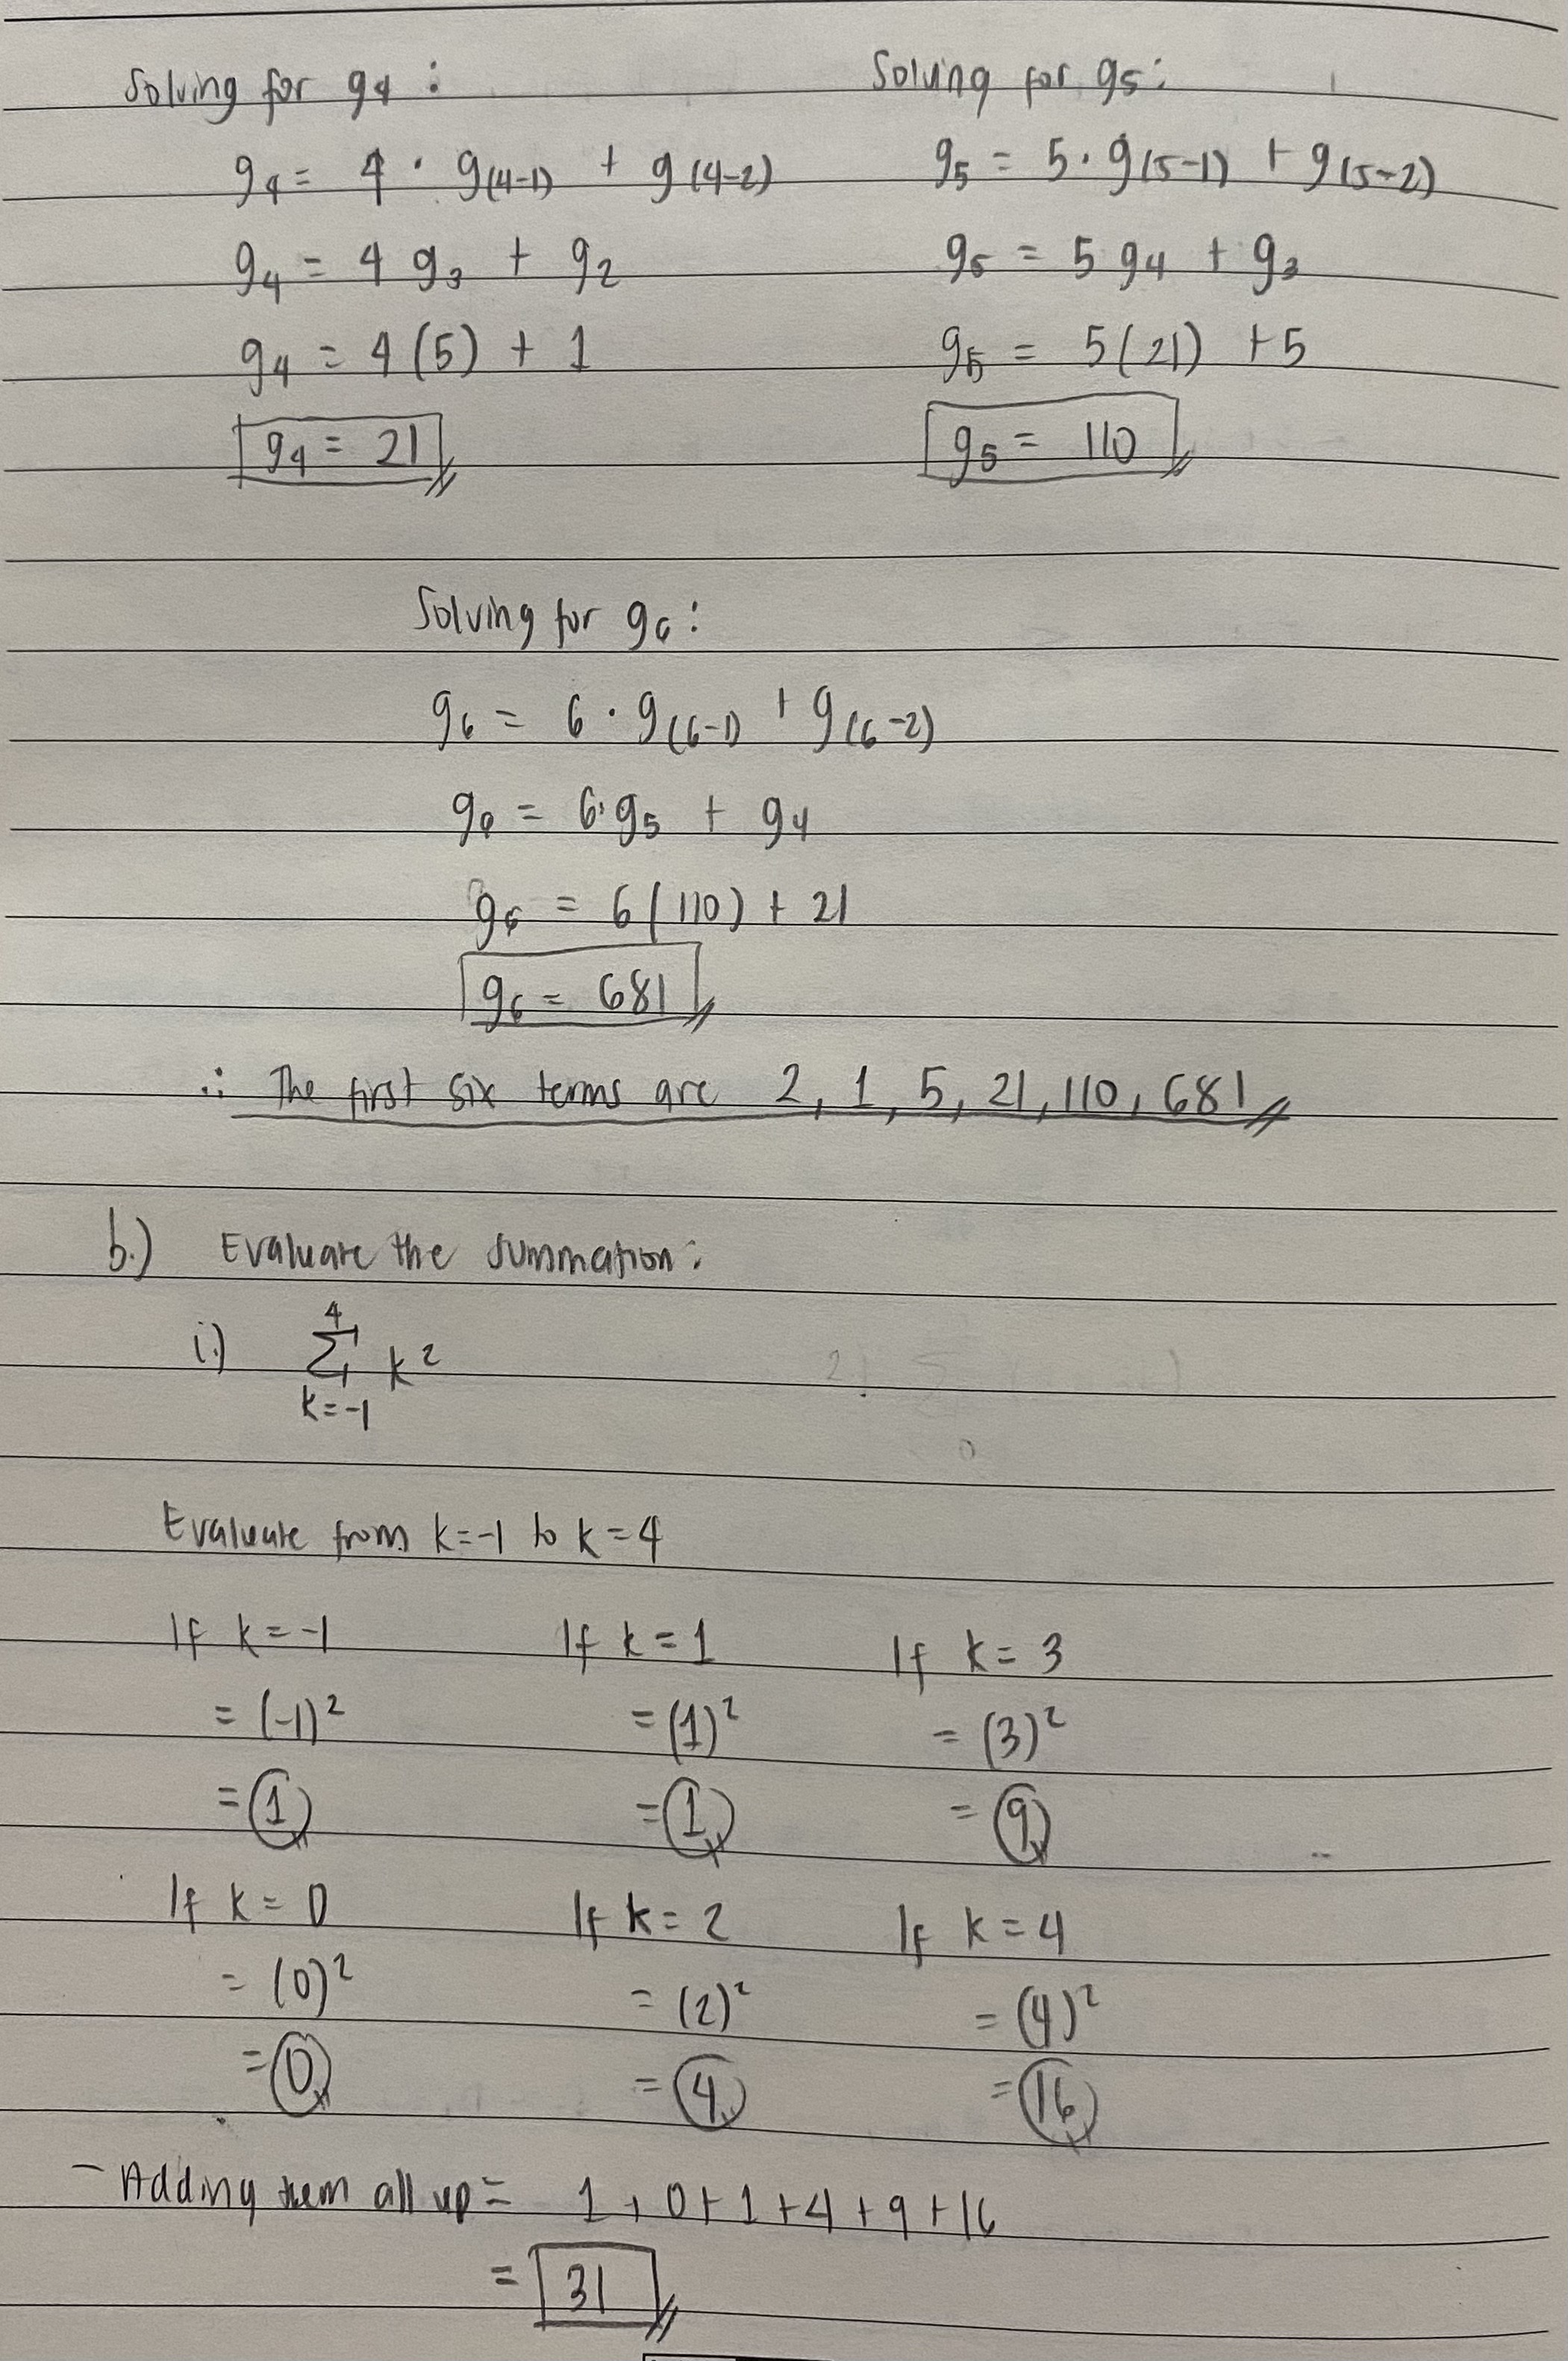 Solving for g₄ :
g₄ = 4 · g₍₄₋₁₎ + g₍₄₋₂₎
g₄ = 4 g₃ + g₂
g₄ = 4 (5) + 1
g₄ = 21
Solving for g₅:
g₅ = 5 · g₍₅₋₁₎ + g₍₅₋₂₎
g₅ = 5 g₄ + g₃
g₅ = 5(21) + 5
g₅ = 110
Solving for g₆:
g₆ = 6 · g₍₆₋₁₎ + g₍₆₋₂₎
g₆ = 6·g₅ + g₄
g₆ = 6(110) + 21
g₆ = 681
∴ The first six terms are 2, 1, 5, 21, 110, 681
b.) Evaluate the summation:
i.) 4
Σ k²
k=-1
Evaluate from k=-1 to k=4
If k=-1
= (-1)²
= 1
If k = 0
= (0)²
= 0
If k = 1
= (1)²
= 1
If k = 2
= (2)²
= 4
If k = 3
= (3)²
= 9
If k = 4
= (4)²
= 16
- Adding them all up = 1 + 0 + 1 + 4 + 9 + 16
= 31